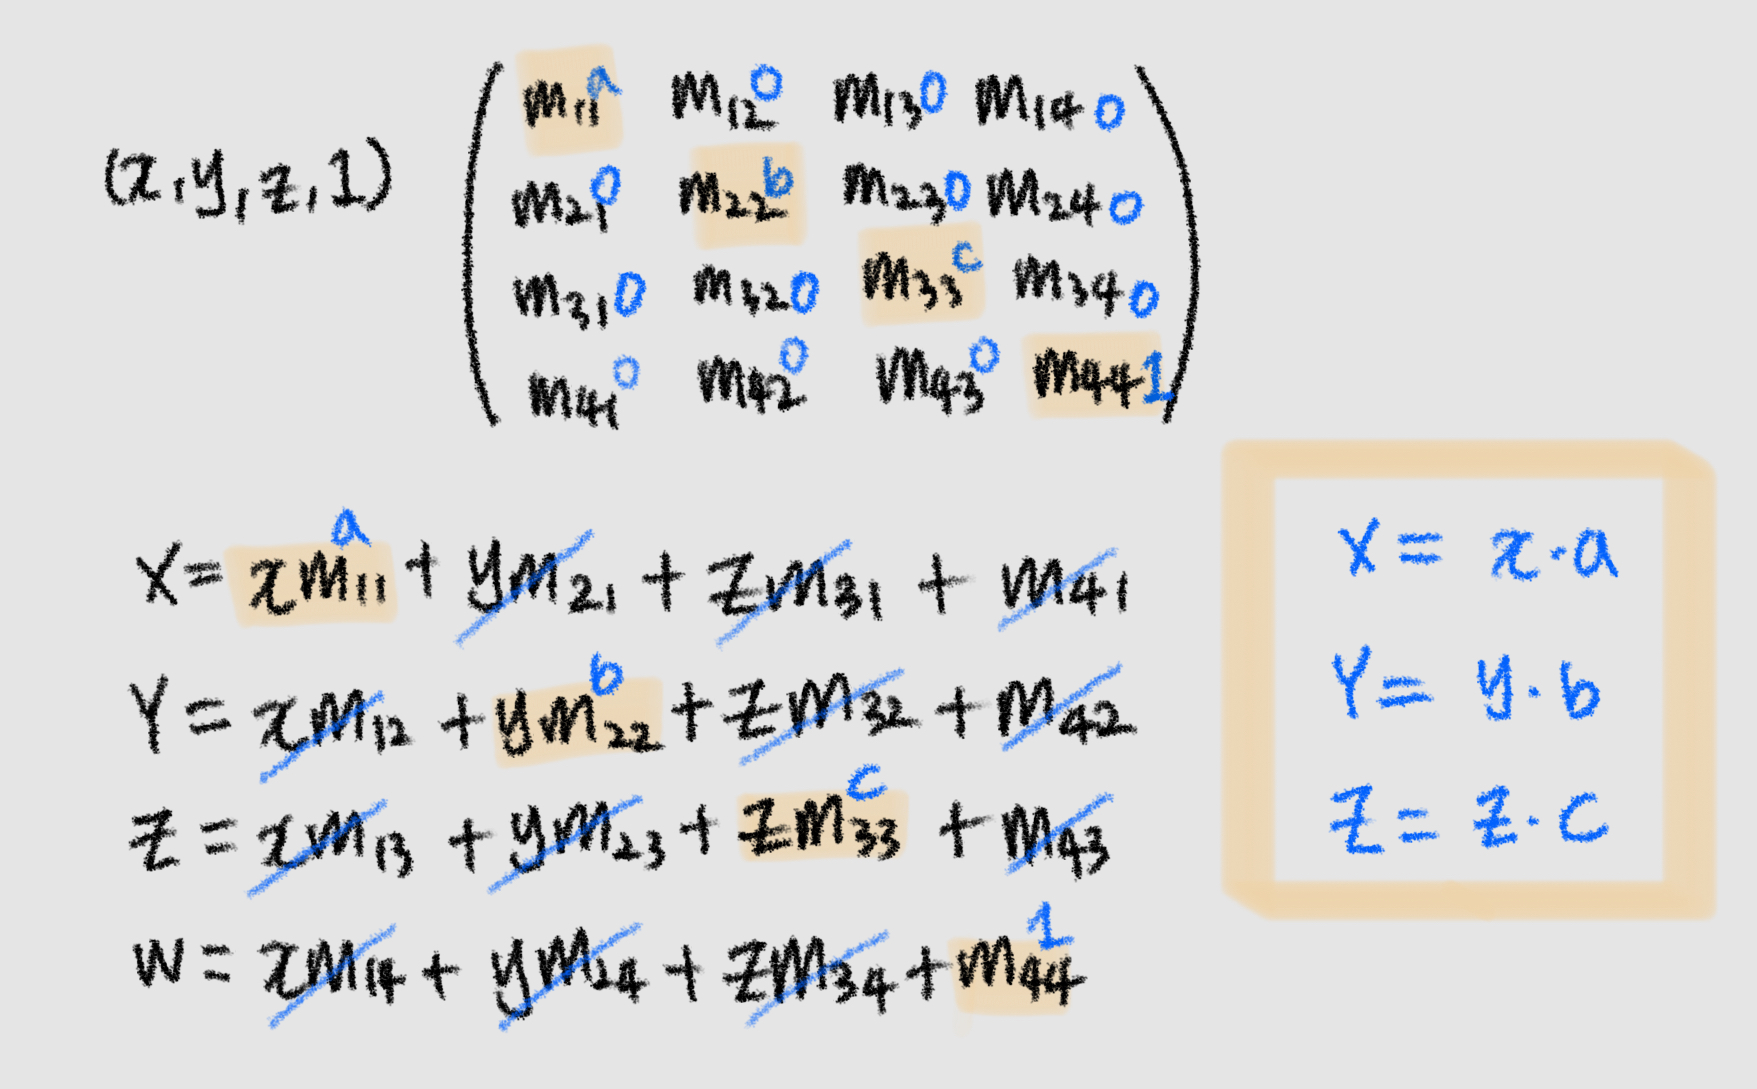 (x, y, z, 1)
m11 a m12 0 m13 0 m14 0
m21 0 m22 b m23 0 m24 0
m31 0 m32 0 m33 c m34 0
m41 0 m42 0 m43 0 m44 1
a
X = xm11 + ym21 + zm31 + m41
b
Y = xm12 + ym22 + zm32 + m42
c
Z = xm13 + ym23 + zm33 + m43
1
W = xm14 + ym24 + zm34 + m44
X = x·a
Y = y·b
Z = z·c